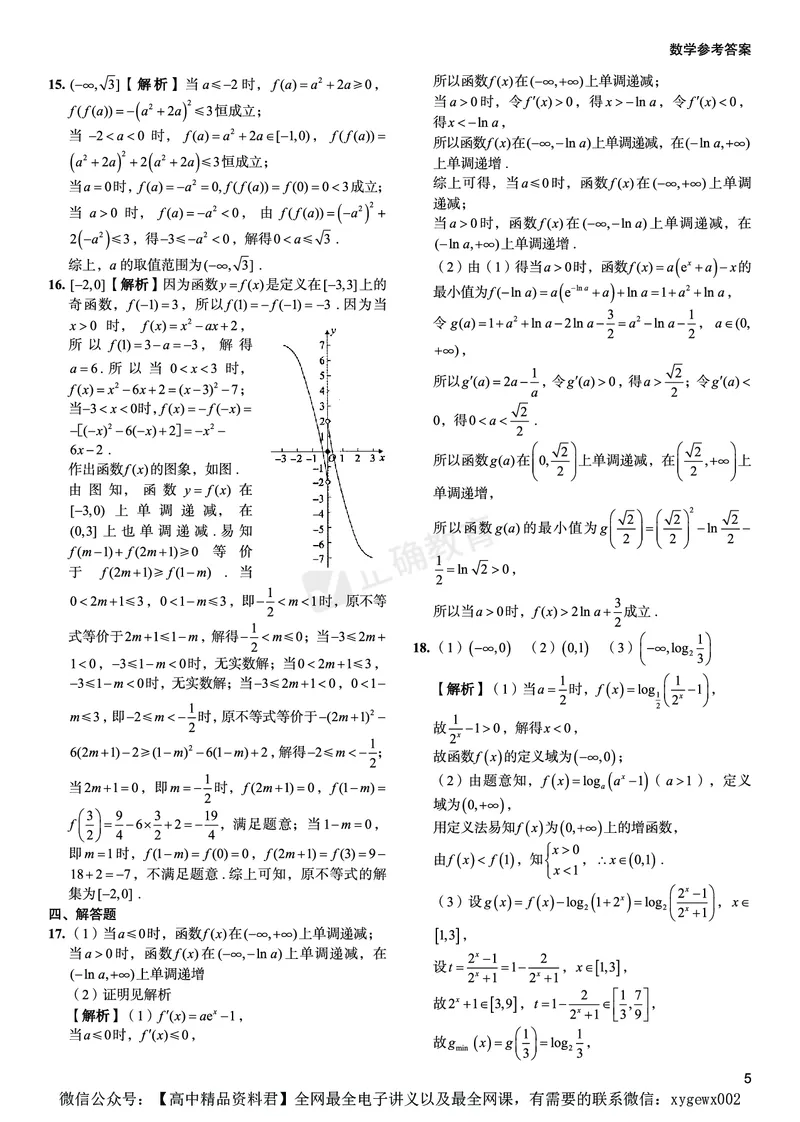 数学参考答案
15. (−∞, 3]【解析】当 a≤−2 时，f(a)=a²+2a≥0，
f(f(a))=−(a²+2a)²≤3恒成立；
当 −2<a<0 时，f(a)=a²+2a∈[−1,0)，f(f(a))=
(a²+2a)²+2(a²+2a)≤3恒成立；
当a=0时，f(a)=−a²=0,f(f(a))=f(0)=0<3成立；
当 a>0 时，f(a)=−a²<0，由 f(f(a))=(−a²)²+
2(−a²)≤3，得−3≤−a²<0，解得0<a≤ 3 .
综上，a的取值范围为(−∞, 3] .
16. [−2,0]【解析】因为函数y=f(x)是定义在[−3,3]上的
奇函数，f(−1)=3，所以f(1)=−f(−1)=−3 .因为当
x>0 时，f(x)=x²−ax+2，
所以 f(1)=3−a=−3，解得
a=6. 所以当 0<x<3 时，
f(x)=x²−6x+2=(x−3)²−7；
当−3<x<0时，f(x)=−f(−x)=
−[(−x)²−6(−x)+2]=−x²−
6x−2 .
作出函数f(x)的图象，如图 .
由图知，函数 y=f(x) 在
[−3,0) 上单调递减，在
(0,3] 上也单调递减 .易知
f(m−1)+f(2m+1)≥0 等价
于 f(2m+1)≥f(1−m) . 当
y
7
6
5
4
3
2
1
−3 −2 −1 O 1 2 3 x
−1
−2
−3
−4
−5
−6
−7
0<2m+1≤3，0<1−m≤3，即−1/2<m<1时，原不等
式等价于2m+1≤1−m，解得−1/2<m≤0；当−3≤2m+
1<0，−3≤1−m<0时，无实数解；当0<2m+1≤3，
−3≤1−m<0时，无实数解；当−3≤2m+1<0，0<1−
m≤3，即−2≤m<−1/2时，原不等式等价于−(2m+1)²−
6(2m+1)−2≥(1−m)²−6(1−m)+2，解得−2≤m<−1/2；
当2m+1=0，即m=−1/2时，f(2m+1)=0，f(1−m)=
f(3/2)=9/4−6×3/2+2=−19/4，满足题意；当1−m=0，
即m=1时，f(1−m)=f(0)=0，f(2m+1)=f(3)=9−
18+2=−7，不满足题意 .综上可知，原不等式的解
集为[−2,0] .
四、解答题
17.（1）当a≤0时，函数f(x)在(−∞,+∞)上单调递减；
当a>0时，函数f(x)在(−∞,−ln a)上单调递减，在
(−ln a,+∞)上单调递增
（2）证明见解析
【解析】（1）f′(x)=aeˣ−1，
当a≤0时，f′(x)≤0，
所以函数f(x)在(−∞,+∞)上单调递减；
当a>0时，令f′(x)>0，得x>−ln a，令f′(x)<0，
得x<−ln a，
所以函数f(x)在(−∞,−ln a)上单调递减，在(−ln a,+∞)
上单调递增 .
综上可得，当a≤0时，函数f(x)在(−∞,+∞)上单调
递减；
当a>0时，函数f(x)在(−∞,−ln a)上单调递减，在
(−ln a,+∞)上单调递增 .
（2）由（1）得当a>0时，函数f(x)=a(eˣ+a)−x的
最小值为f(−ln a)=a(e^(−ln a)+a)+ln a=1+a²+ln a，
令g(a)=1+a²+ln a−2ln a−3/2=a²−ln a−1/2，a∈(0,
+∞)，
所以g′(a)=2a−1/a，令g′(a)>0，得a> 2/2；令g′(a)<
0，得0<a< 2/2 .
所以函数g(a)在(0, 2/2)上单调递减，在( 2/2,+∞)上
单调递增，
所以函数g(a)的最小值为g( 2/2)=( 2/2)²−ln 2/2−
1/2=ln 2>0，
所以当a>0时，f(x)>2ln a+3/2成立 .
18.（1）(−∞,0) （2）(0,1) （3）(−∞,log₂ 1/3)
【解析】（1）当a=1/2时，f(x)=log_(1/2)(1/2ˣ−1)，
故1/2ˣ−1>0，解得x<0，
故函数f(x)的定义域为(−∞,0)；
（2）由题意知，f(x)=logₐ(aˣ−1)（a>1），定义
域为(0,+∞)，
用定义法易知f(x)为(0,+∞)上的增函数，
由f(x)<f(1)，知{x>0 x<1，∴x∈(0,1) .
（3）设g(x)=f(x)−log₂(1+2ˣ)=log₂((2ˣ−1)/(2ˣ+1))，x∈
[1,3]，
设t=(2ˣ−1)/(2ˣ+1)=1−2/(2ˣ+1)，x∈[1,3]，
故2ˣ+1∈[3,9]，t=1−2/(2ˣ+1)∈[1/3,7/9]，
故g_min(x)=g(1/3)=log₂ 1/3，
正确教育
5
微信公众号：【高中精品资料君】全网最全电子讲义以及最全网课，有需要的联系微信：xygewx002